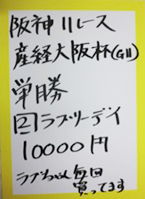 阪神11レース
産経大阪杯(GII)
単勝
2 ラブリーデイ
10000円
ラブちゃん毎回
買ってます